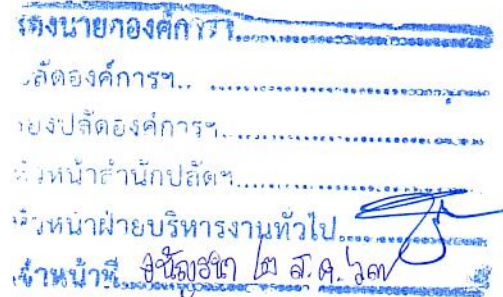 รองนายกองค์การฯ
ปลัดองค์การฯ
รองปลัดองค์การฯ
หัวหน้าสำนักปลัดฯ
หัวหน้าฝ่ายบริหารงานทั่วไป
เจ้าหน้าที่ ๒ ส.ค. ๖๗